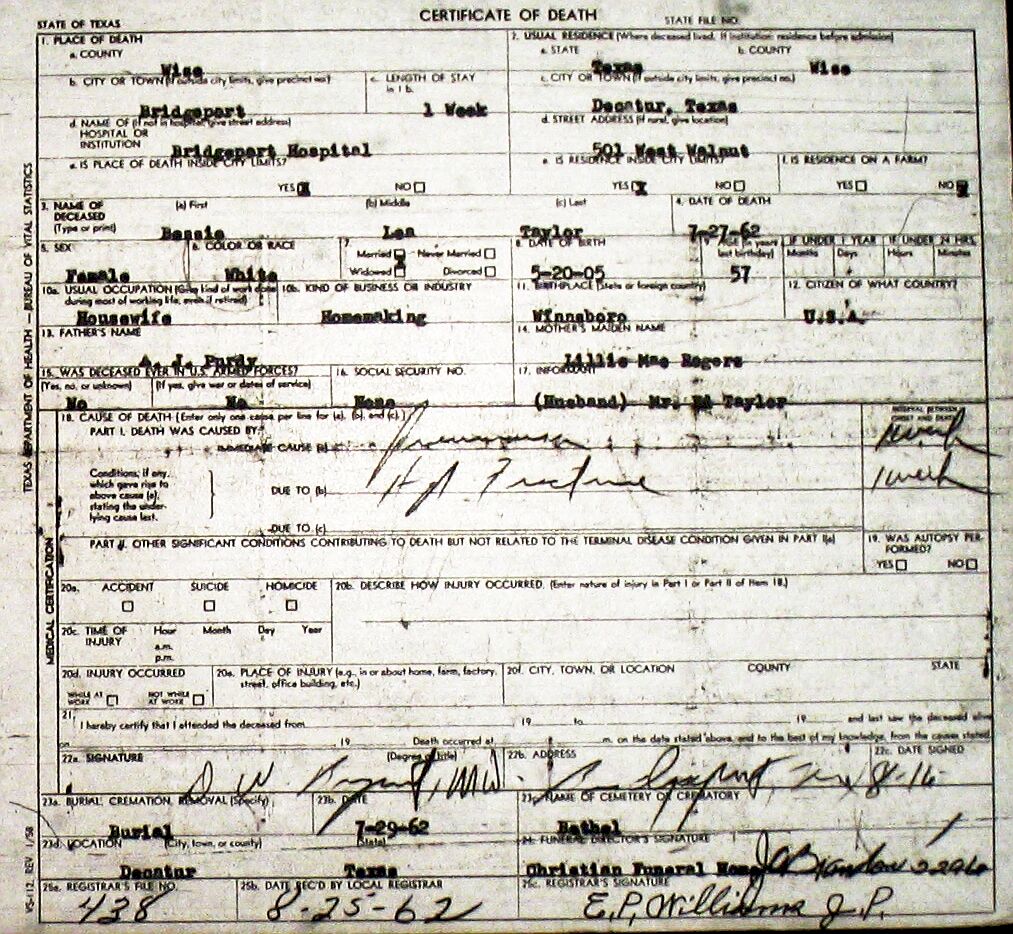 CERTIFICATE OF DEATH
STATE OF TEXAS STATE FILE NO.
1. PLACE OF DEATH 2. USUAL RESIDENCE (Where deceased lived. If institution: residence before admission)
a. COUNTY a. STATE b. COUNTY
Wise Texas Wise
b. CITY OR TOWN (If outside city limits, give precinct no.) c. LENGTH OF STAY in 1 b. c. CITY OR TOWN (If outside city limits, give precinct no.)
Bridgeport 1 Week Decatur, Texas
d. NAME OF (If not in hospital, give street address) HOSPITAL OR INSTITUTION d. STREET ADDRESS (If rural, give location)
Bridgeport Hospital 501 West Walnut
e. IS PLACE OF DEATH INSIDE CITY LIMITS? e. IS RESIDENCE INSIDE CITY LIMITS? f. IS RESIDENCE ON A FARM?
YES X NO YES X NO YES NO X
3. NAME OF DECEASED (Type or print) (a) First (b) Middle (c) Last 4. DATE OF DEATH
Bessie Lea Taylor 7-27-62
5. SEX 6. COLOR OR RACE 7. Married Never Married Widowed Divorced 8. DATE OF BIRTH 9. AGE (In years last birthday) IF UNDER 1 YEAR Months Days IF UNDER 24 HRS. Hours Minutes
Female White 5-20-05 57
10a. USUAL OCCUPATION (Give kind of work done during most of working life, even if retired) 10b. KIND OF BUSINESS OR INDUSTRY 11. BIRTHPLACE (State or foreign country) 12. CITIZEN OF WHAT COUNTRY?
Housewife Homemaking Winnsboro U.S.A.
13. FATHER'S NAME 14. MOTHER'S MAIDEN NAME
A. J. Purdy Lillie Mae Rogers
15. WAS DECEASED EVER IN U.S. ARMED FORCES? 16. SOCIAL SECURITY NO. 17. INFORMANT
(Yes, no, or unknown) (If yes, give war or dates of service)
No No None (Husband) Mr. Ed Taylor
18. CAUSE OF DEATH (Enter only one cause per line for (a), (b), and (c).) INTERVAL BETWEEN ONSET AND DEATH
PART I. DEATH WAS CAUSED BY:
IMMEDIATE CAUSE (a) Pneumonia 1 week
Conditions, if any, which gave rise to above cause (a), stating the underlying cause last.
DUE TO (b) Hip Fracture 1 week
DUE TO (c)
PART II. OTHER SIGNIFICANT CONDITIONS CONTRIBUTING TO DEATH BUT NOT RELATED TO THE TERMINAL DISEASE CONDITION GIVEN IN PART I(a) 19. WAS AUTOPSY PERFORMED?
YES NO
20a. ACCIDENT SUICIDE HOMICIDE 20b. DESCRIBE HOW INJURY OCCURRED. (Enter nature of injury in Part I or Part II of Item 18.)
20c. TIME OF INJURY Hour Month Day Year
a.m.
p.m.
20d. INJURY OCCURRED 20e. PLACE OF INJURY (e.g., in or about home, farm, factory, street, office building, etc.) 20f. CITY, TOWN, OR LOCATION COUNTY STATE
WHILE AT WORK NOT WHILE AT WORK
21. I hereby certify that I attended the deceased from 19 to 19 and last saw the deceased alive
on 19 Death occurred at m. on the date stated above, and to the best of my knowledge, from the causes stated.
22a. SIGNATURE (Degree or title) 22b. ADDRESS 22c. DATE SIGNED
D W MD. Bridgeport, Tex 8-16-
23a. BURIAL, CREMATION, REMOVAL (Specify) 23b. DATE 23c. NAME OF CEMETERY OR CREMATORY
Burial 7-29-62 Bethel
23d. LOCATION (City, town, or county) (State) 24. FUNERAL DIRECTOR'S SIGNATURE
Decatur Texas Christian Funeral Home
25a. REGISTRAR'S FILE NO. 25b. DATE REC'D BY LOCAL REGISTRAR 25c. REGISTRAR'S SIGNATURE
438 8-25-62 E. P. Williams J. P.
TEXAS DEPARTMENT OF HEALTH — BUREAU OF VITAL STATISTICS
MEDICAL CERTIFICATION
VS-112, REV. 1/58